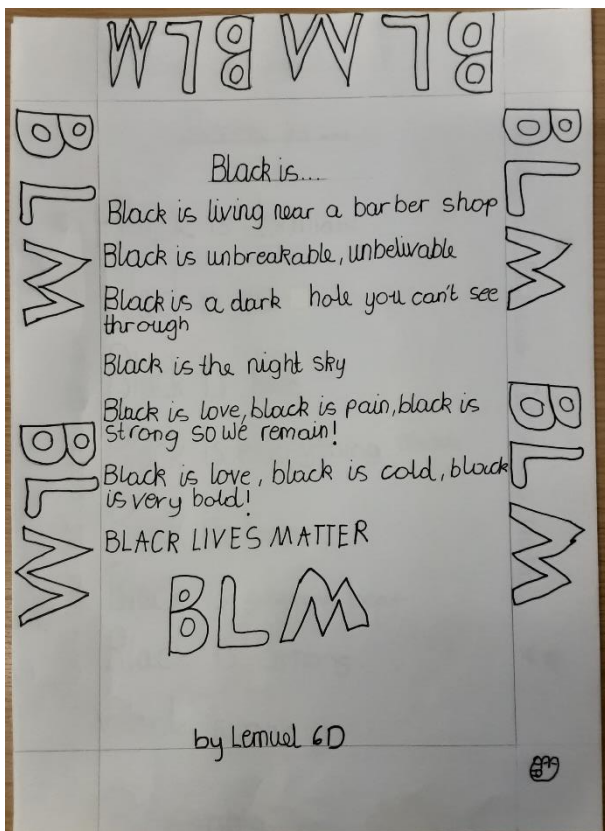 BLM BLM
BLM
BLM
BLM
BLM
Black is...
Black is living near a barber shop
Black is unbreakable, unbelivable
Black is a dark hole you can't see
through
Black is the night sky
Black is love, black is pain, black is
strong so we remain!
Black is love, black is cold, black
is very bold!
BLACK LIVES MATTER
BLM
by Lemuel 6D